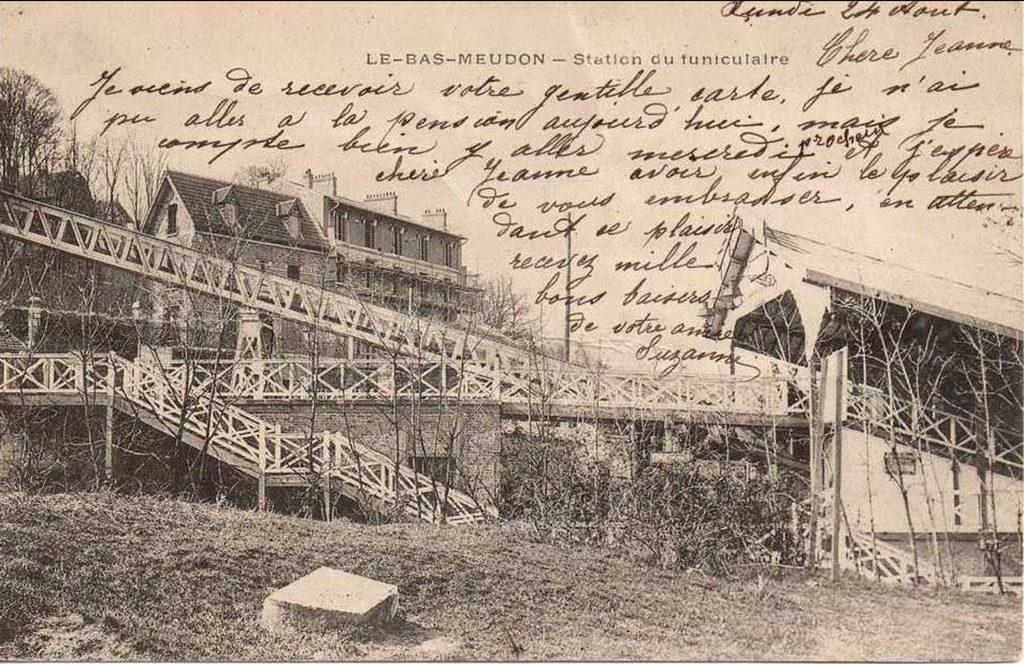 Lundi 24 Aout.
LE-BAS-MEUDON — Station du funiculaire
Chere Jeanne
Je viens de recevoir votre gentille carte. je n'ai
pu aller a la pension aujourd'hui, mais je
compte bien y aller mercredi prochain et j'espère
chère Jeanne avoir enfin le plaisir
de vous embrasser, en atten-
dant ce plaisir
recevez mille
bons baisers
de votre amie
Suzanne